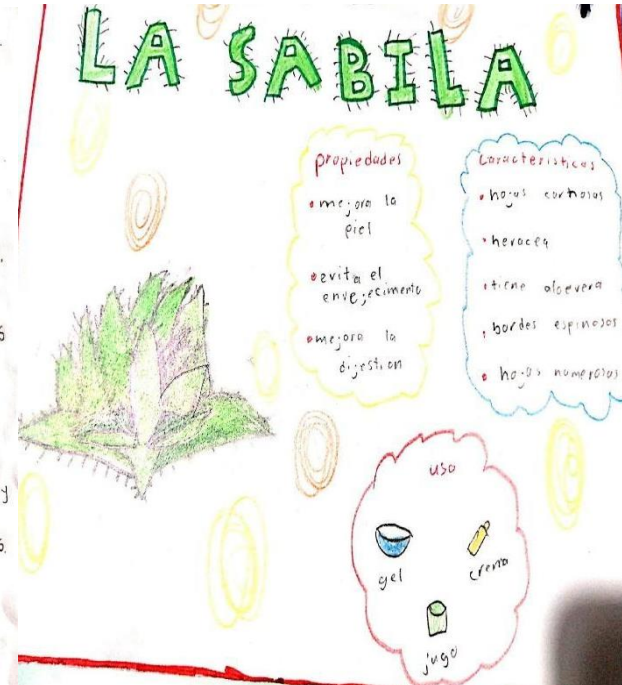 LA SABILA
propiedades
• mejora la
piel
• evita el
envejecimento
• mejora la
digestion
Caracteristicas
• hojas carnosas
• heracea
• tiene aloevera
• bordes espinosos
• hojas numerosas
uso
gel
crema
jugo
y